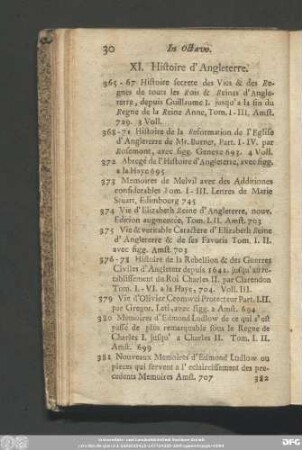 30 In Octavo.
XI. Histoire d'Angleterre.
365-67 Histoire secrete des Vies & des Re-
gnes de tous les Rois & Reines d'Angle-
terre, depuis Guillaume I. jusqu'a la fin du
Regne de la Reine Anne, Tom. I-III, Amst.
729. 3 Voll.
368-71 Histoire de la Reformation de l'Eglise
d'Angleterre de Mr. Burnet, Part. I-IV. par
Rosemont, avec figg. Geneve 693. 4 Voll.
372 Abregé de l'Histoire d'Angleterre, avec figg.
a la Haye 695
373 Memoires de Melvil avec des Additiones
considerables Tom. I-III. Lettres de Marie
Stuart, Edimbourg 745
374 Vie d'Elizabeth Reine d'Angleterre, nouv.
Edition augmentée, Tom. I. II. Amst. 703
375 Vie & veritable Caractere d'Elizabeth Reine
d'Angleterre & de ses Favoris Tom. I. II.
avec figg. Amst. 703
376-78 Histoire de la Rebellion & des Guerres
Civiles d'Angleterre depuis 1641. jusqu'au re-
tablissement du Roi Charles II. par Clarendon
Tom. I.-VI. a la Haye, 704. Voll. III.
379 Vie d'Olivier Cromwel Protecteur Part. I.II.
par Gregoe. Leti, avec figg. a Amst. 694
380 Memoires d'Edmond Ludlow de ce qui s'est
passé de plus remarquable sous le Regne de
Charles I. jusqu' a Charles II. Tom. I. II.
Amst. 699
381 Nouveaux Memoires d'Edmond Ludlow ou
pieces qui servent a l'eclaircissement des pre-
cedents Memoires Amst. 707
382